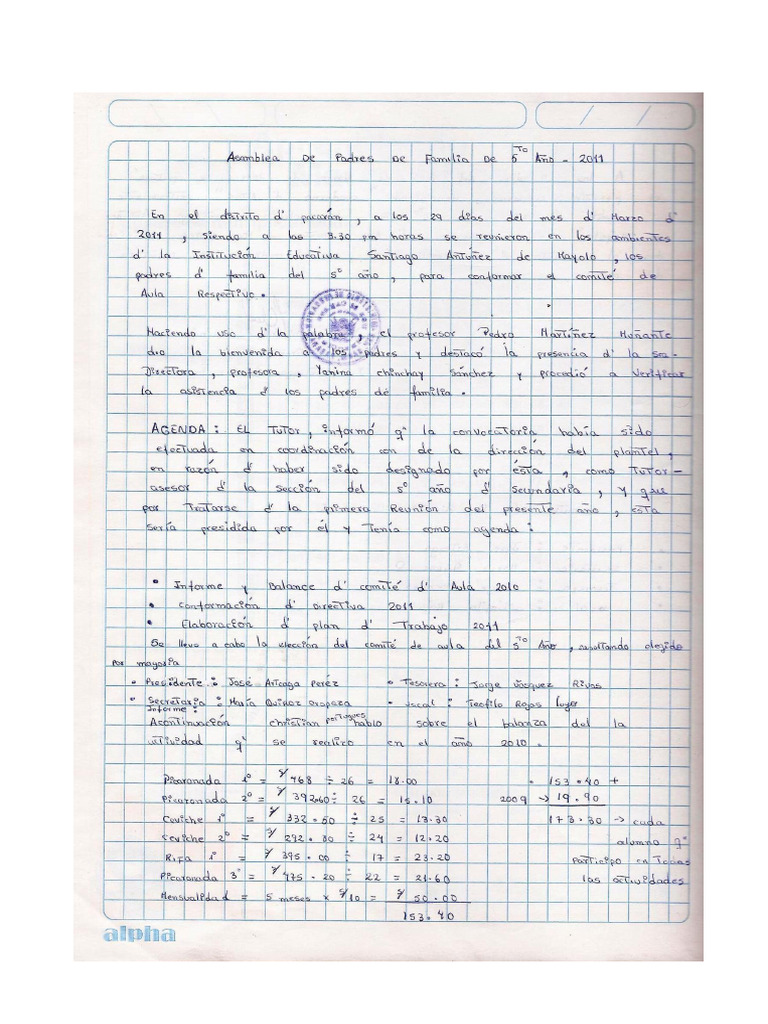 Asamblea De Padres De Familia De 5TO Año - 2011
En el distrito d' pacarán, a los 29 días del mes d' Marzo d'
2011, siendo a las 3.30 pm horas se reunieron en los ambientes
d' la Institución Educativa Santiago Antuñez de Mayolo, los
padres d' familia del 5° año, para conformar el comité de
Aula Respectivo.
Haciendo uso d' la palabra, el profesor Pedro Martiñez Huñante
dio la bienvenida a los padres y destacó la presencia d' la sub-
Directora, profesora, Yanina chinchay Sánchez y procedió a verificar
la asistencia d' los padres de familia.
AGENDA: EL Tutor, informó q' la convocatoria había sido
efectuada en coordinación con de la dirección del plantel,
en razón d' haber sido designado por ésta, como Tutor-
asesor d' la sección del 5° año d' secundaria, y que
por Tratarse d' la primera Reunión del presente año, ésta
sería presidida por él y Tenía como agenda:
• Informe y Balance d' comité d' Aula 2010
• Conformación d' Directiva 2011
• Elaboración d' plan d' Trabajo 2011
Se llevo a cabo la elección del comité de aula del 5TO Año, resultando elegido
por mayoría
• Presidente: José Arteaga Peréz • Tesorera: Jorge Vásquez Rivas
• Secretaria: María Quiroz Oropeza - vocal: Teofilo Rojas
Informe:
Acontinuación christian portugues hablo sobre el balanza del la
utividad q' se realizo en el año 2010.
Picaronada 1° = S/ 468 ÷ 26 = 18.00 - 153.40 +
Picaronada 2° = S/ 392.60 ÷ 26 = 15.10 2009 → 19.90
Ceviche 1° = S/ 332.50 ÷ 25 = 13.30 173.30 → cada
Ceviche 2° = S/ 292.80 ÷ 24 = 12.20 alumno q'
Rifa 1° = S/ 395.00 ÷ 17 = 23.20 participo en Todas
Picaronada 3° = S/ 475.20 ÷ 22 = 21.60 las actividades
Mensualidad = 5 meses x S/10 = S/ 50.00
153.40
alpha